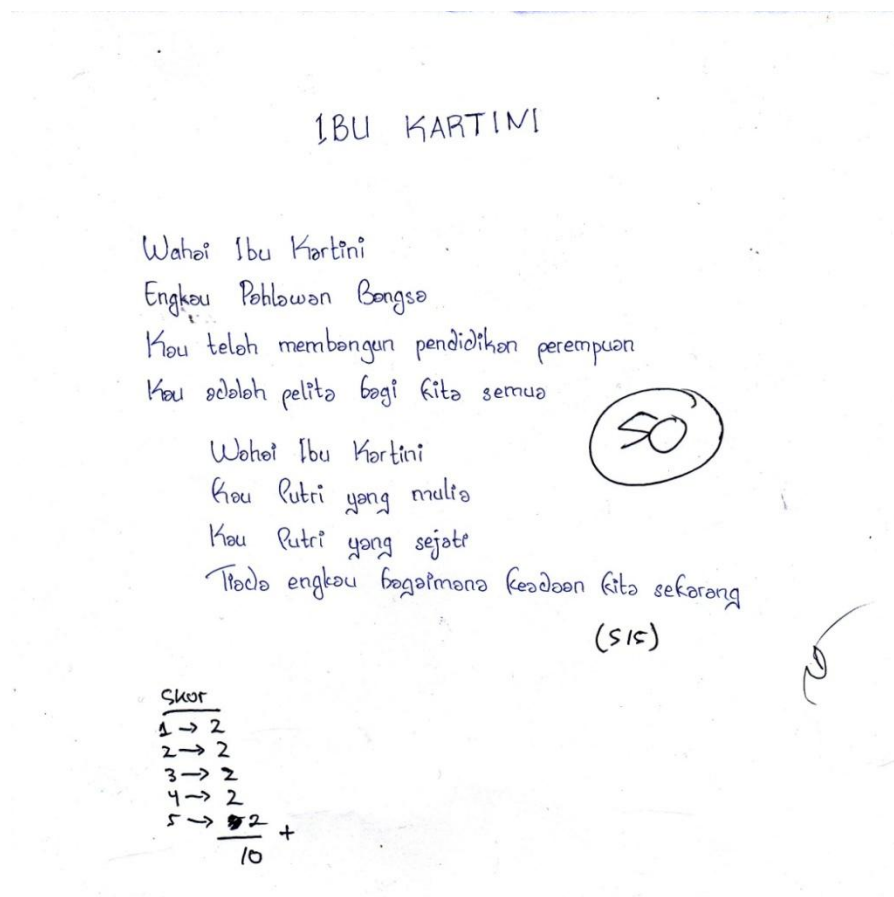 IBU KARTINI
Wahai Ibu Kartini
Engkau Pahlawan Bangsa
Kau telah membangun pendidikan perempuan
Kau adalah pelita bagi kita semua
50
Wahai Ibu Kartini
Kau Putri yang mulia
Kau Putri yang sejati
Tiada engkau bagaimana keadaan kita sekarang
(S15)
Skor
1 → 2
2 → 2
3 → 2
4 → 2
5 → 2 +
10